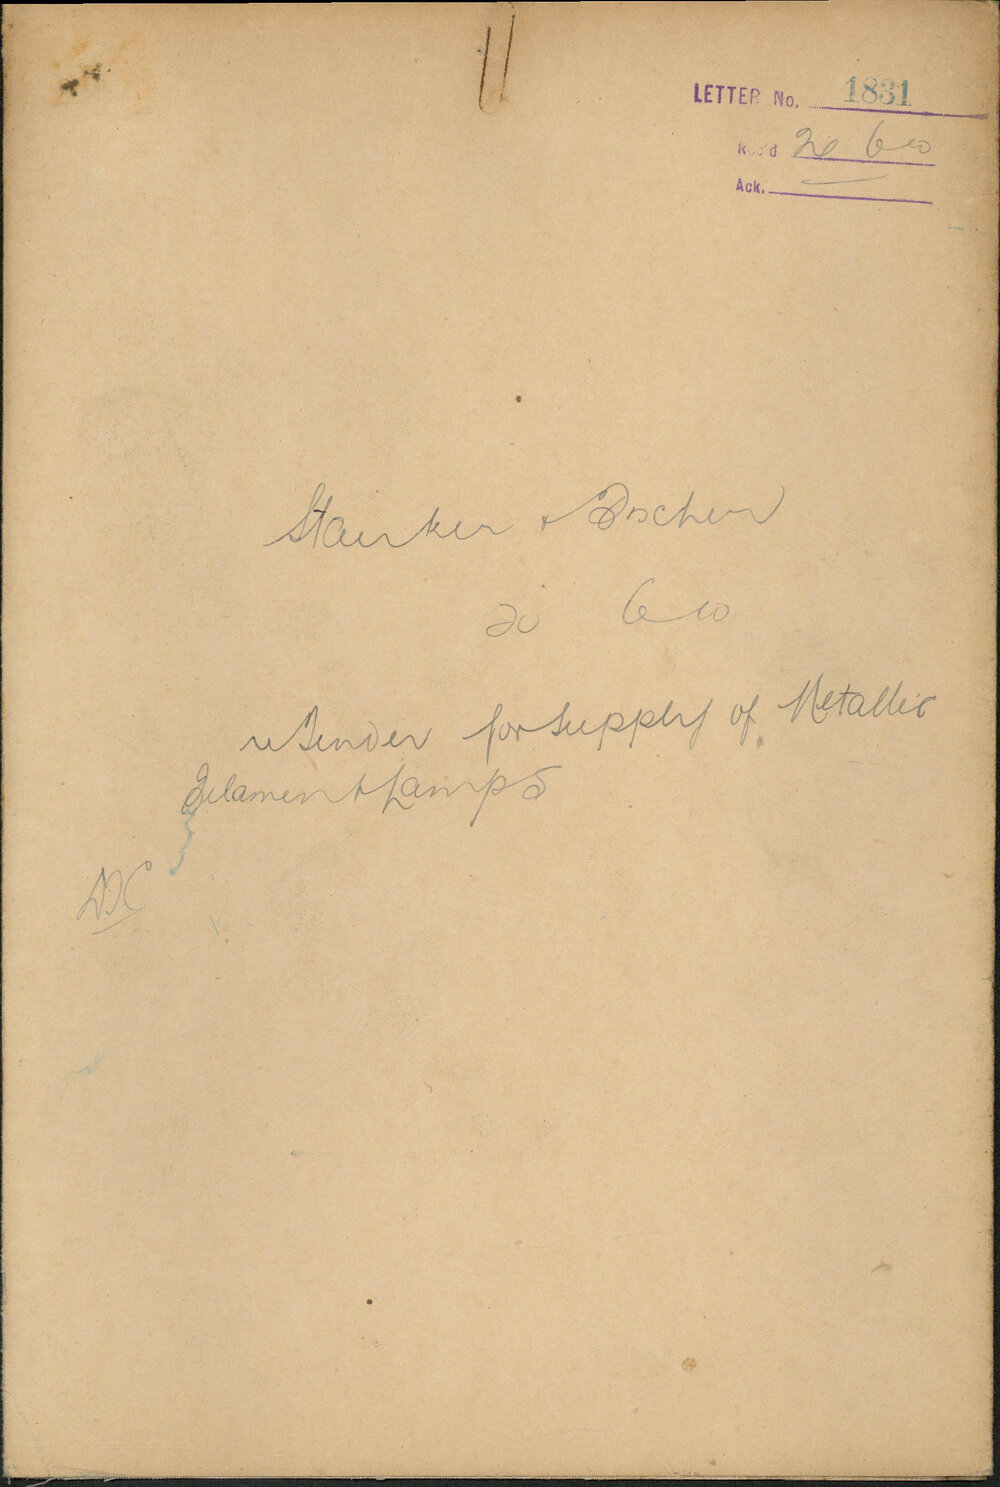 LETTER No. 1831
Rec'd 20 6 10
Ack.
Staerker & Fischer
20 6 10
re Tender for supply of Metallic
Filament Lamps